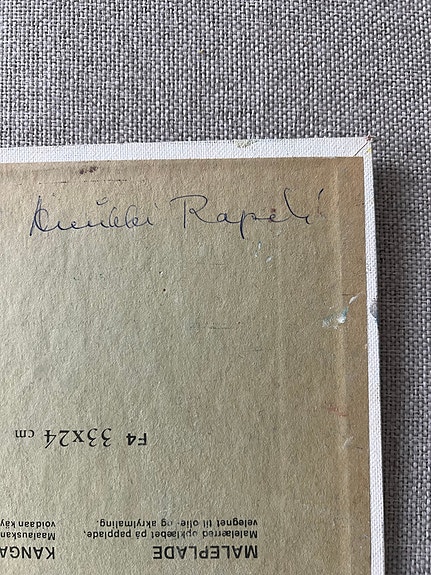 Annikki Rapeli
MALEPLADE
Malelærred opklæbet på papplade,
velegnet til olie- og akrylmaling.
KANGA
Maalauskan
voidaan käy
F4 33x24 cm